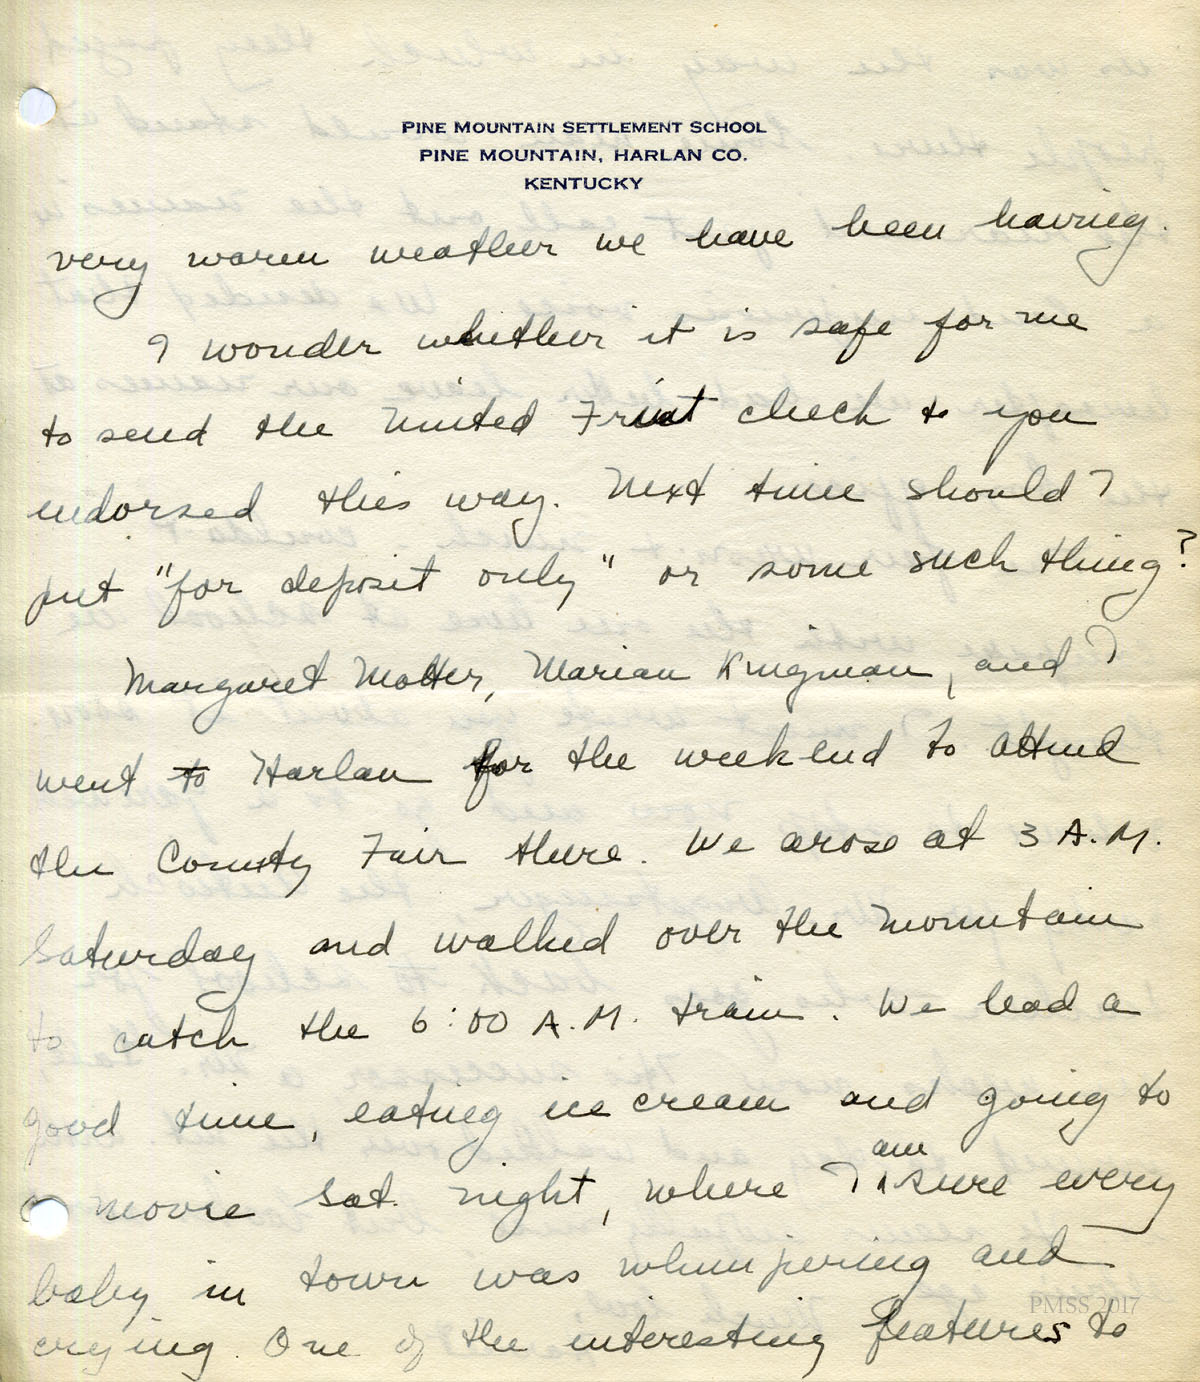 PINE MOUNTAIN SETTLEMENT SCHOOL
PINE MOUNTAIN, HARLAN CO.
KENTUCKY
very warm weather we have been having.
I wonder whether it is safe for me
to send the United Fruit check to you
endorsed this way. Next time should I
put "for deposit only" or some such thing?
Margaret Motter, Marian Kingman, and I
went to Harlan for the weekend to attend
the County Fair there. We arose at 3 A.M.
Saturday and walked over the mountain
to catch the 6:00 A.M. train. We had a
good time, eating ice cream and going to
a movie Sat. night, where I am sure every
baby in town was whimpering and
crying. One of the interesting features to
PMSS 2017